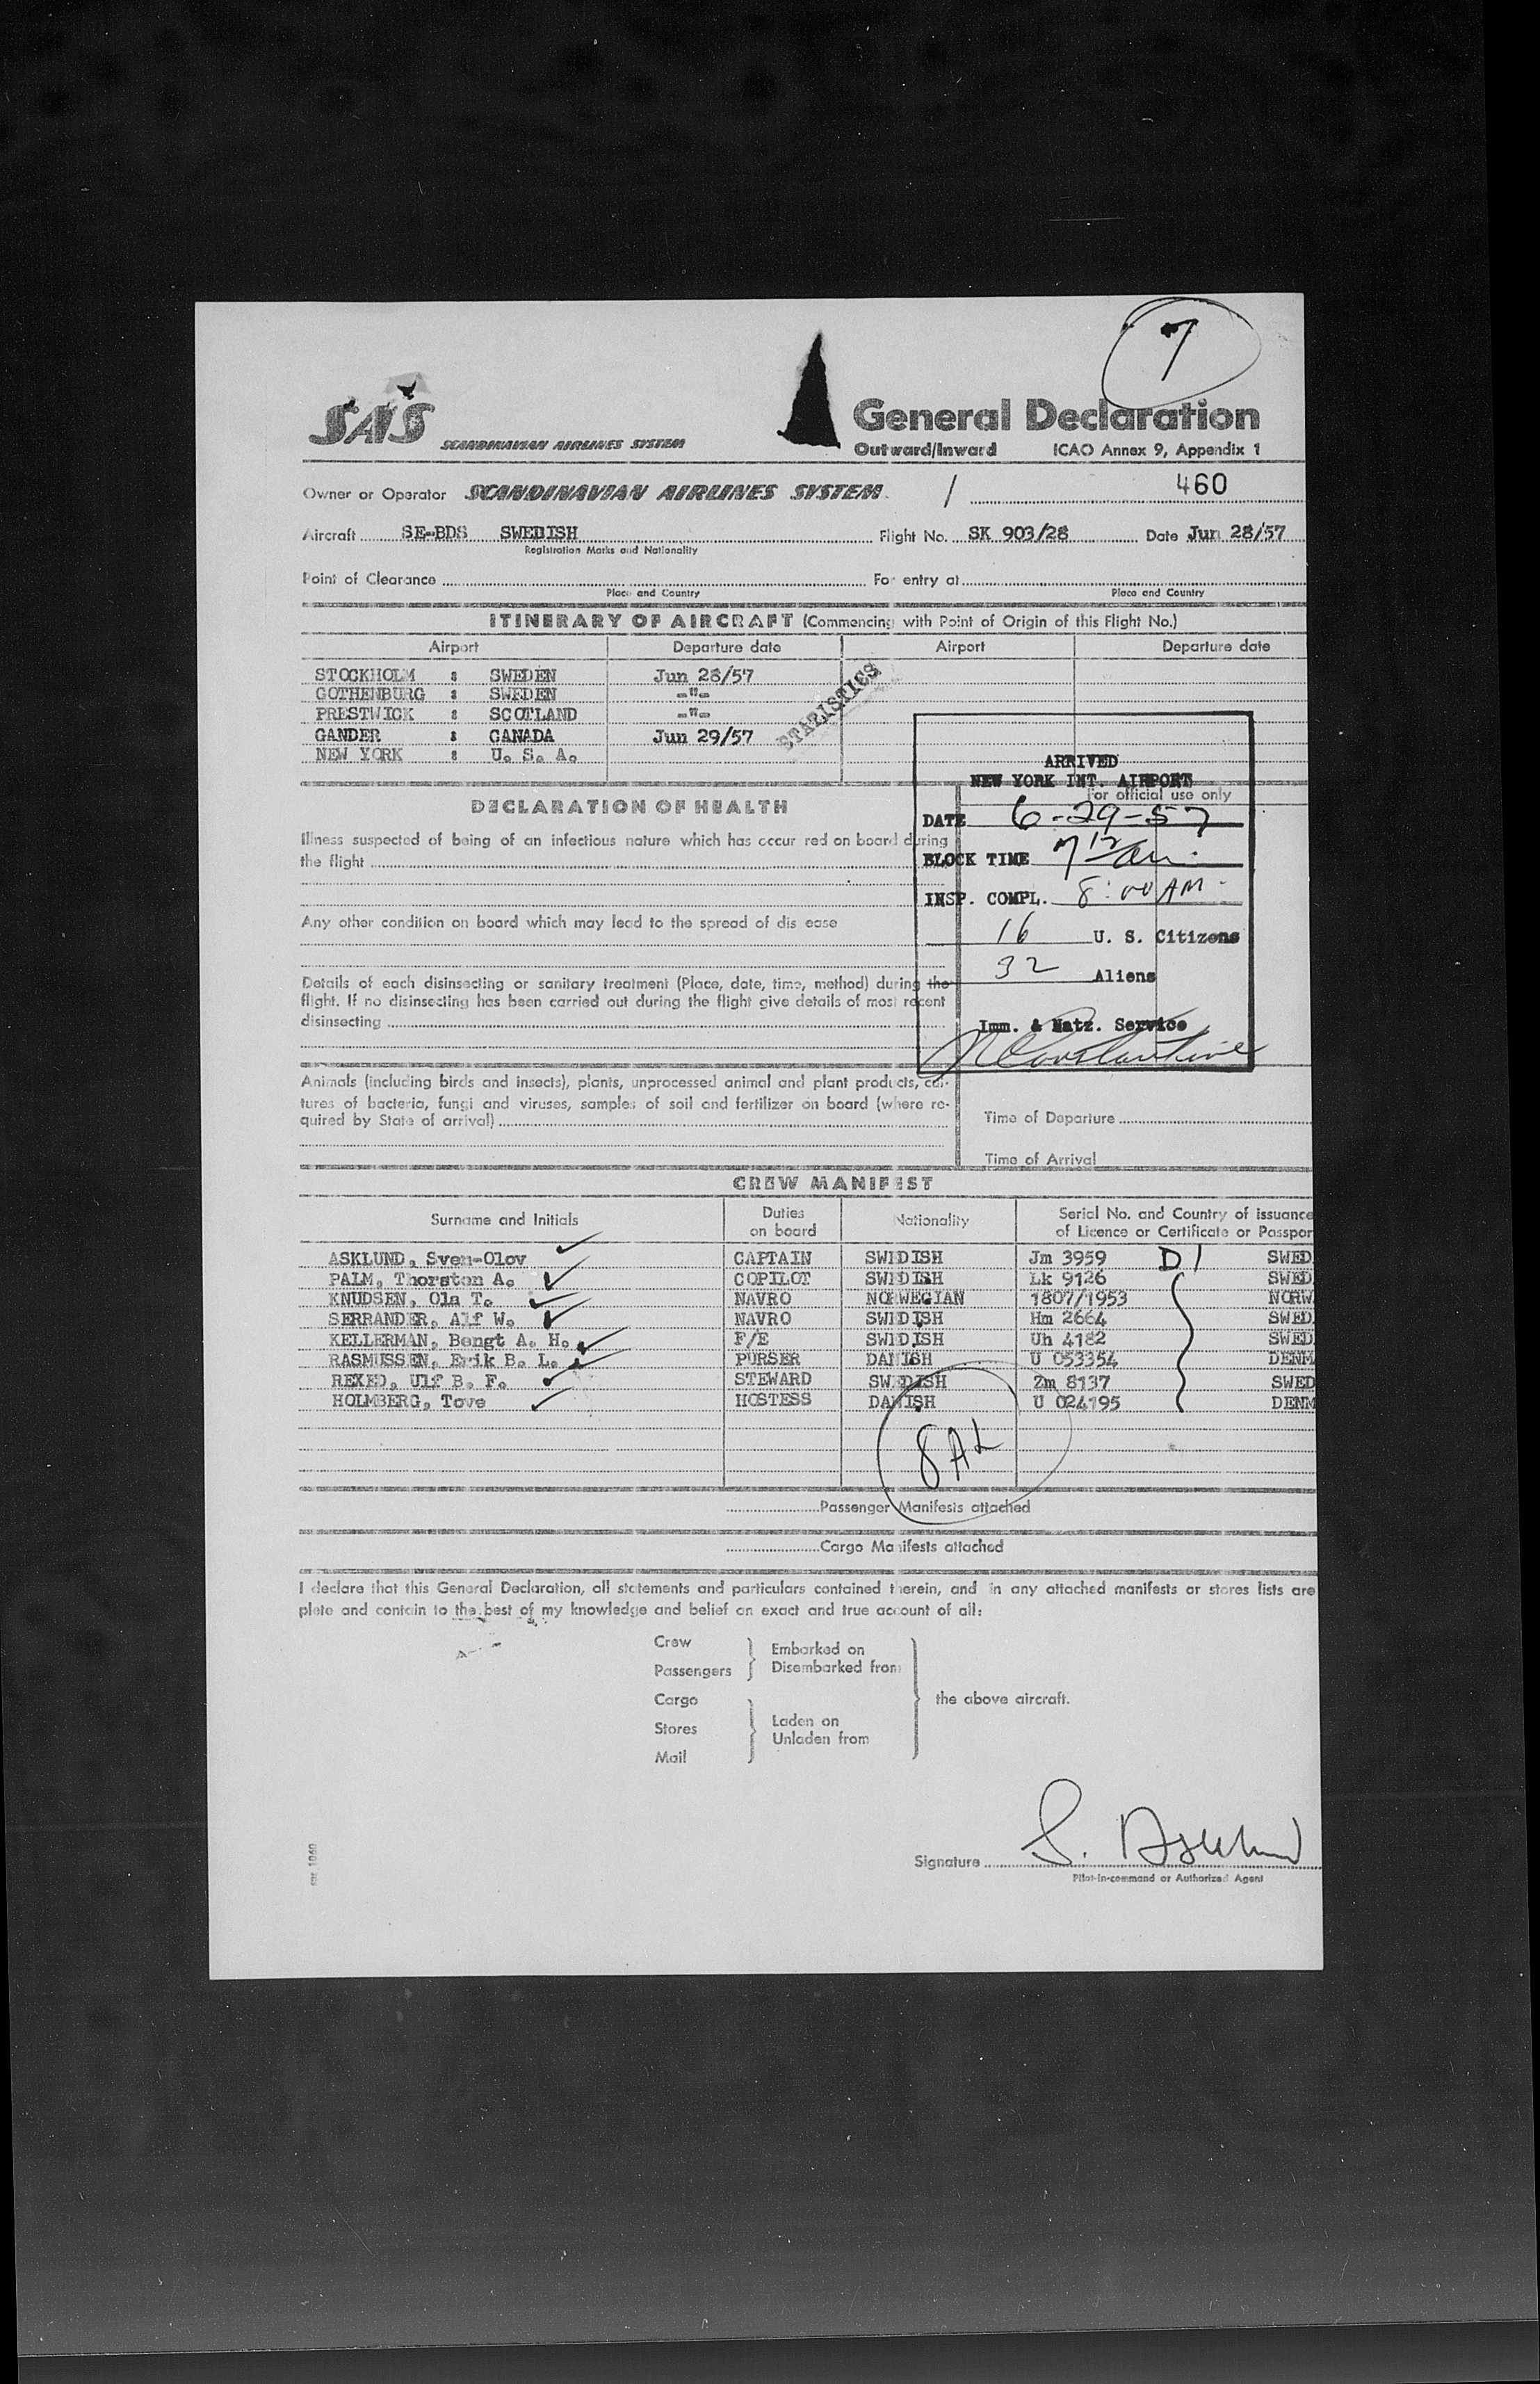 7
SAS SCANDINAVIAN AIRLINES SYSTEM
General Declaration
Outward/Inward ICAO Annex 9, Appendix 1
Owner or Operator SCANDINAVIAN AIRLINES SYSTEM / 460
Aircraft SE-BDS SWEDISH Flight No. SK 903/28 Date Jun 28/57
Registration Marks and Nationality
Point of Clearance For entry at
Place and Country Place and Country
ITINERARY OF AIRCRAFT (Commencing with Point of Origin of this Flight No.)
Airport Departure date Airport Departure date
STOCKHOLM : SWEDEN Jun 28/57
GOTHENBURG : SWEDEN -"-
PRESTWICK : SCOTLAND -"-
GANDER : CANADA Jun 29/57
NEW YORK : U. S. A.
STATISTICS
ARRIVED
NEW YORK INT. AIRPORT
For official use only
DATE 6-29-57
BLOCK TIME 7 12 am.
INSP. COMPL. 8:00 AM.
16 U. S. Citizens
32 Aliens
Imm. & Natz. Service
DECLARATION OF HEALTH
Illness suspected of being of an infectious nature which has occur red on board during
the flight
Any other condition on board which may lead to the spread of dis ease
Details of each disinsecting or sanitary treatment (Place, date, time, method) during the
flight. If no disinsecting has been carried out during the flight give details of most recent
disinsecting
Animals (including birds and insects), plants, unprocessed animal and plant products, cul-
tures of bacteria, fungi and viruses, samples of soil and fertilizer on board (where re-
quired by State of arrival)
Time of Departure
Time of Arrival
CREW MANIFEST
Surname and Initials Duties on board Nationality Serial No. and Country of issuance
of Licence or Certificate or Passpor
ASKLUND, Sven-Olov CAPTAIN SWEDISH Jm 3959 D 1 SWED
PALM, Thorsten A. COPILOT SWEDISH Lk 9126 SWED
KNUDSEN, Ola T. NAVRO NORWEGIAN 1807/1953 NORW
SERRANDER, Alf W. NAVRO SWEDISH Hm 2664 SWED
KELLERMAN, Bengt A. H. F/E SWEDISH Uh 4182 SWED
RASMUSSEN, Erik B. L. PURSER DANISH U 053354 DENM
REXED, Ulf B. F. STEWARD SWEDISH Zm 8137 SWED
HOLMBERG, Tove HOSTESS DANISH U 024195 DENM
8 AL
Passenger Manifests attached
Cargo Manifests attached
I declare that this General Declaration, all statements and particulars contained therein, and in any attached manifests or stores lists are
plete and contain to the best of my knowledge and belief an exact and true account of all:
Crew
Passengers
Embarked on
Disembarked from
Cargo
Stores
Mail
Laden on
Unladen from
the above aircraft.
Signature S. Asklund
Pilot-in-command or Authorized Agent